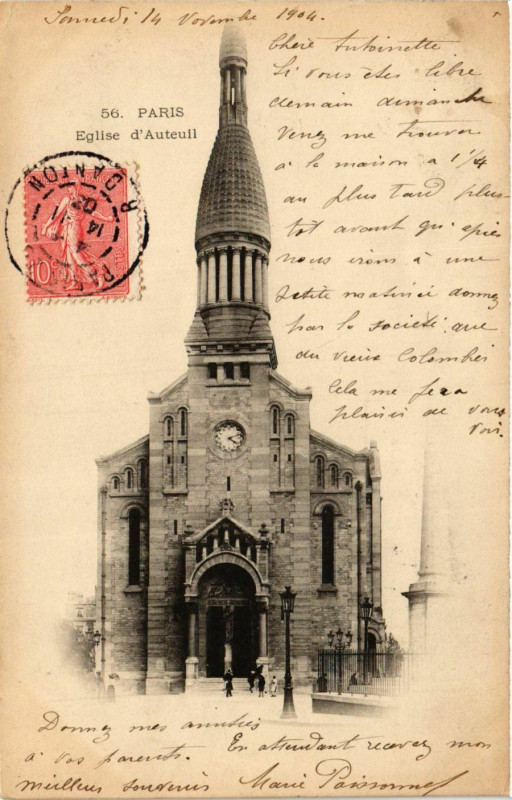 Samedi 14 Novembre 1904.
Chère Antoinette
Si vous êtes libre
demain dimanche
Venez me trouver
à la maison à 1 1/4
au plus tard plus-
tôt avant qu'après
nous irons à une
petite matinée donnée
par la société que
du vieux Colombier
Cela me fera
plaisir de vous
voir.
56. PARIS
Eglise d'Auteuil
10
14
DANTON
Donnez mes amitiés
à vos parents. En attendant recevez mon
meilleur souvenir Marie